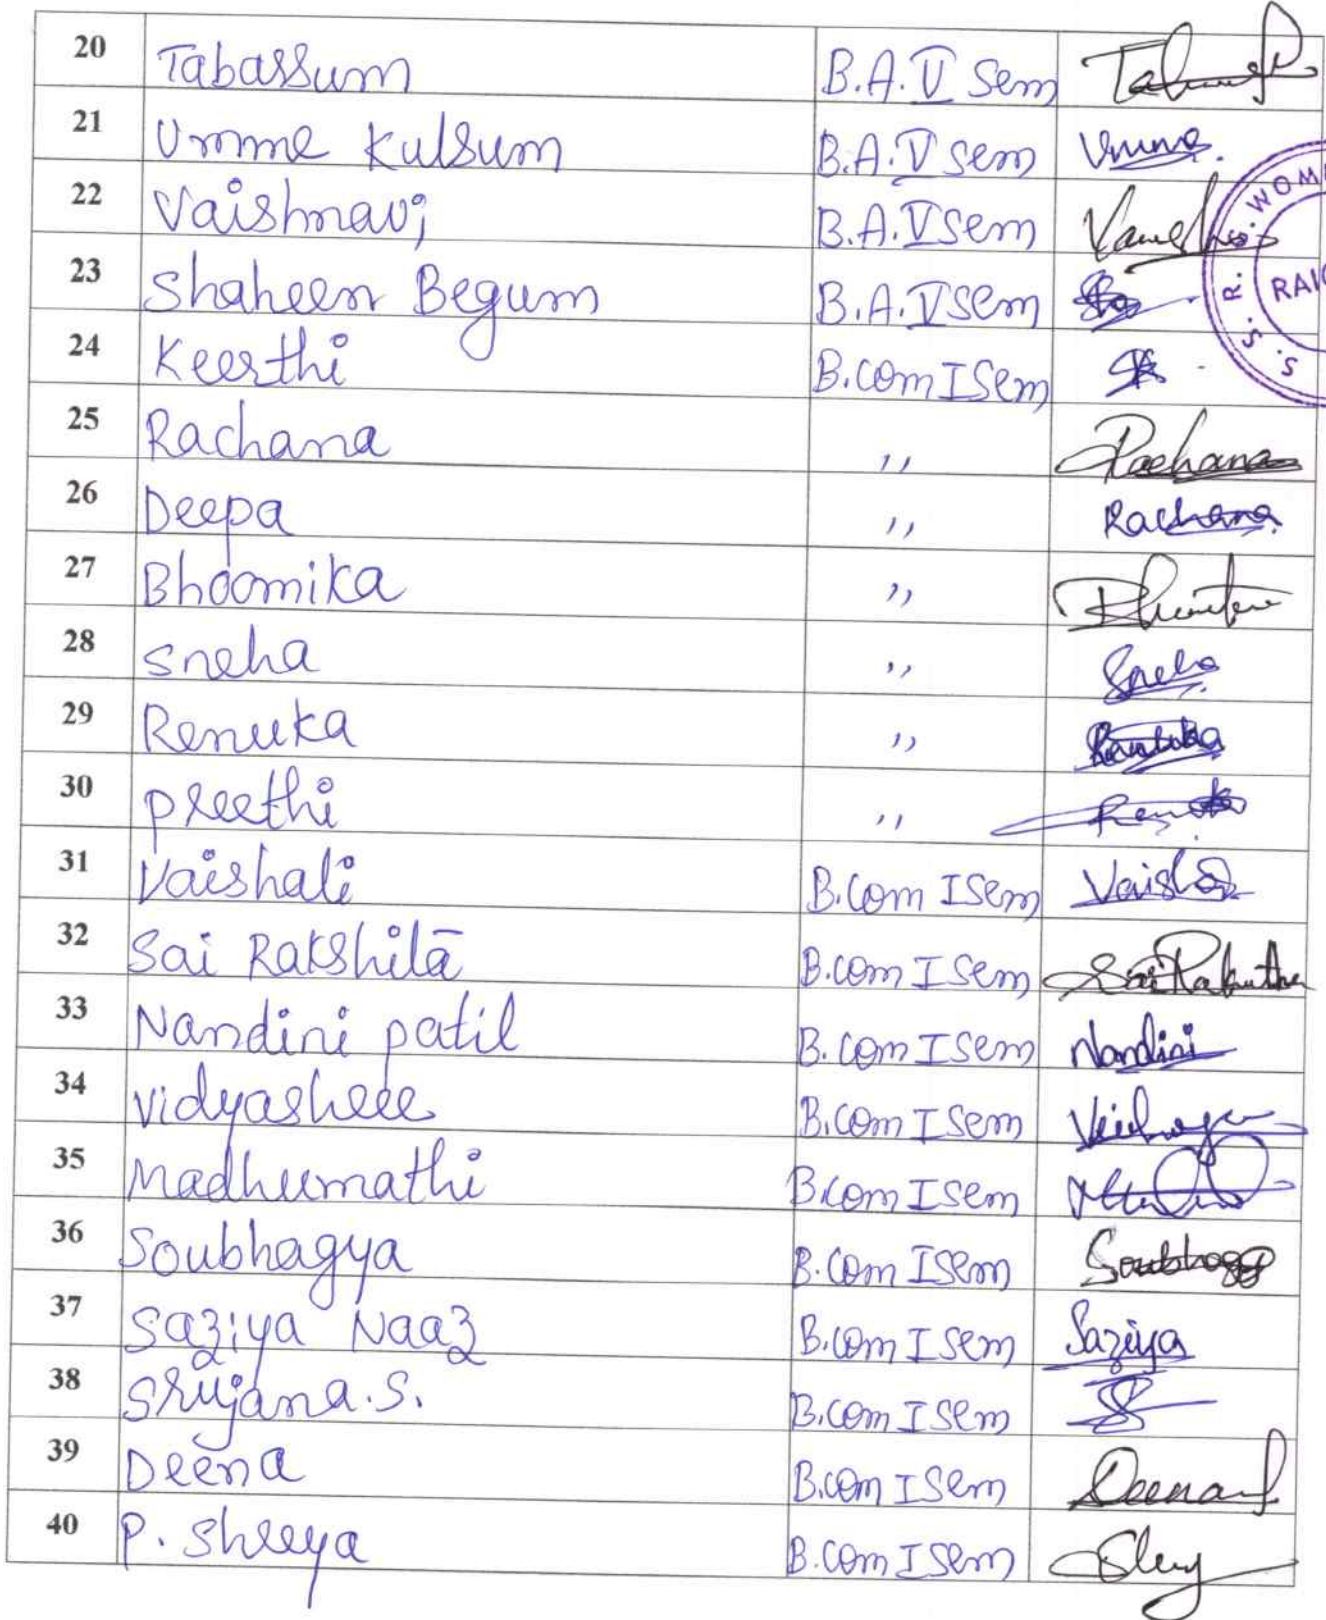 20 Tabassum B.A. V Sem
21 Umme Kulsum B.A. V Sem Umme.
22 Vaishnavi B.A. V Sem
23 Shaheen Begum B.A. V Sem
24 Keerthi B.com I Sem
25 Rachana ,, Rachana
26 Deepa ,, Rachana
27 Bhoomika ,,
28 Sneha ,, Sneha
29 Renuka ,, Renuka
30 Preethi ,,
31 Vaishali B.com I Sem
32 Sai Rakshitā B.com I Sem
33 Nandini patil B.com I Sem Nandini
34 Vidyashree B.com I Sem
35 Madhumathi B.com I Sem
36 Soubhagya B.com I Sem
37 Saziya Naaz B.com I Sem Saziya
38 Srujana.S. B.com I Sem
39 Deena B.com I Sem Deena
40 P. Shreya B.com I Sem
S. S. R. G. WOM
RAI